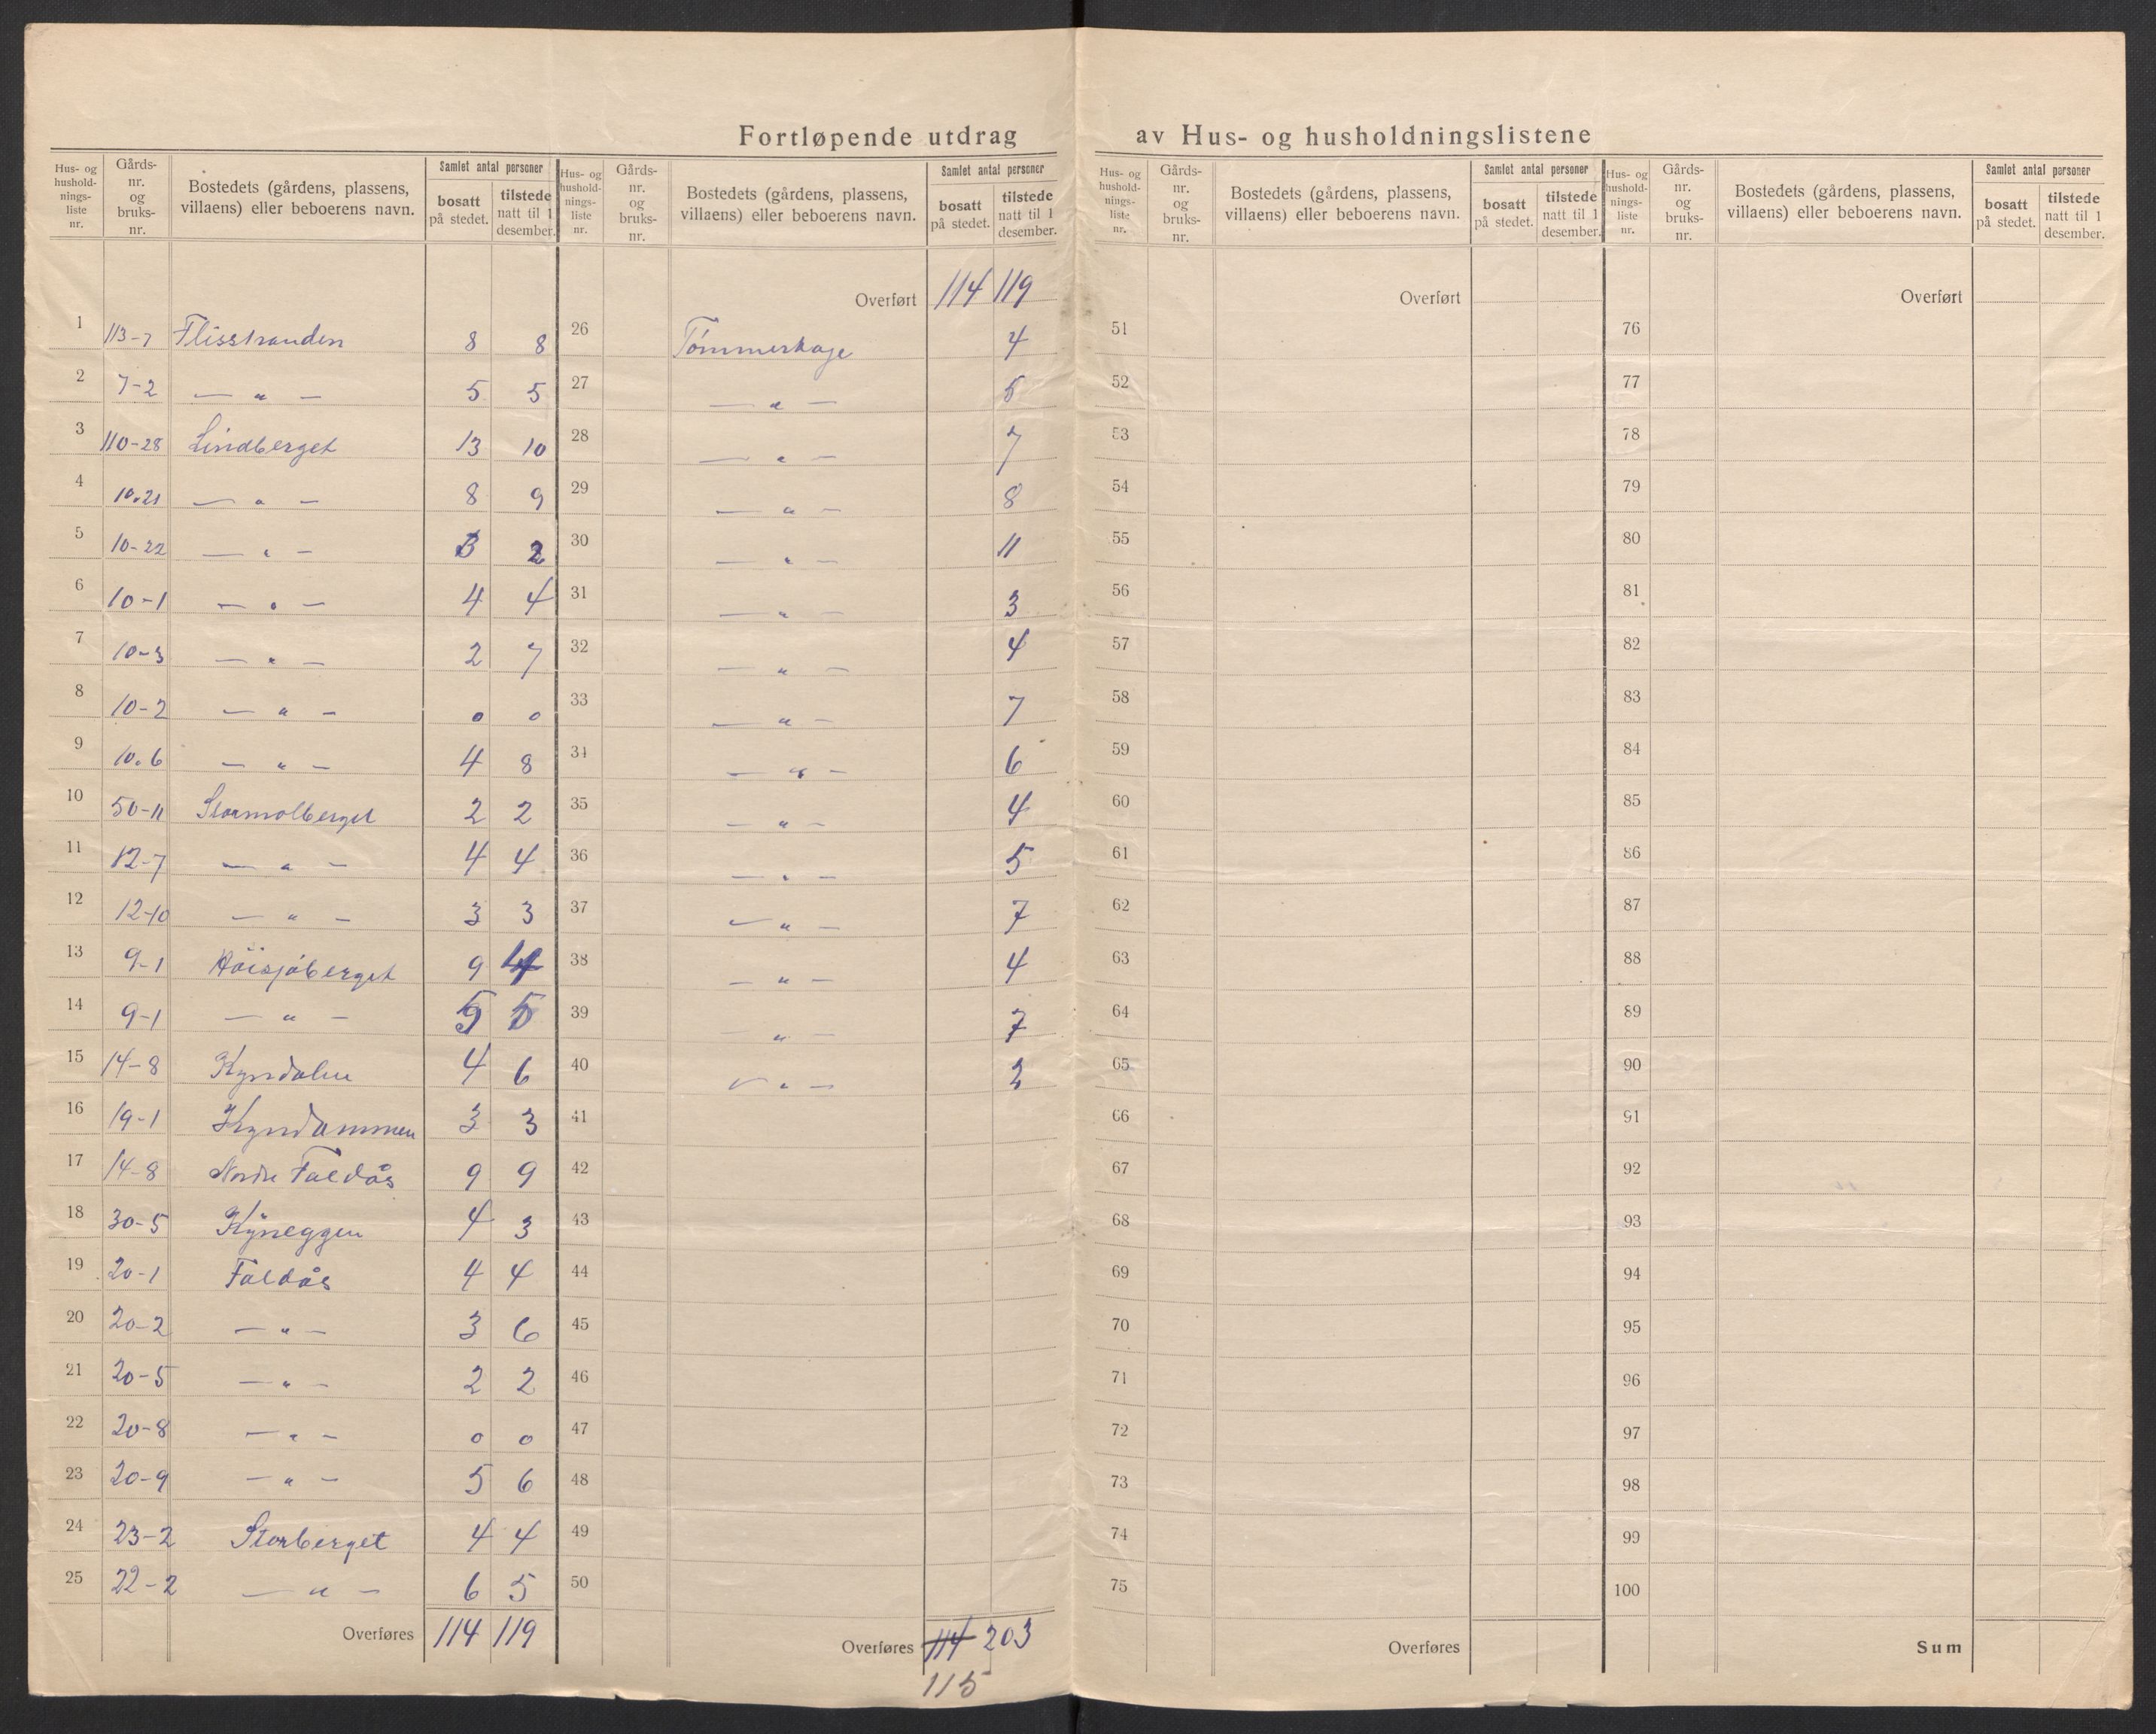 Fortløpende utdrag av Hus- og husholdningslistene
Hus- og husholdnings-liste nr. | Gårds-nr. og bruks-nr. | Bostedets (gårdens, plassens, villaens) eller beboerens navn. | Samlet antal personer bosatt på stedet. | tilstede natt til 1 desember.
1 113-7 Flisstranden 8 8
2 7-2 — „ — 5 5
3 110-28 Lindberget 13 10
4 10.21 — „ — 8 9
5 10-22 — „ — 3 2
6 10-1 — „ — 4 4
7 10-3 — „ — 2 7
8 10-2 — „ — 0 0
9 10.6 — „ — 4 8
10 50-11 Stormolberget 2 2
11 12-7 — „ — 4 4
12 12-10 — „ — 3 3
13 9-1 Höisjöberget 9 4
14 9-1 — „ — 5 5
15 14-8 Kyndalen 4 6
16 19-1 Kyndammen 3 3
17 14-8 Nordre Faldås 9 9
18 30-5 Kyneggen 4 3
19 20-1 Faldås 4 4
20 20-2 — „ — 3 6
21 20-5 — „ — 2 2
22 20-8 — „ — 0 0
23 20-9 — „ — 5 6
24 23-2 Storberget 4 4
25 22-2 — „ — 6 5
Overføres 114 119
Hus- og husholdnings-liste nr. | Gårds-nr. og bruks-nr. | Bostedets (gårdens, plassens, villaens) eller beboerens navn. | Samlet antal personer bosatt på stedet. | tilstede natt til 1 desember.
Overført 114 119
26 Tömmerkoje 4
27 — „ — 5
28 — „ — 7
29 — „ — 8
30 — „ — 11
31 — „ — 3
32 — „ — 4
33 — „ — 7
34 — „ — 6
35 — „ — 4
36 — „ — 5
37 — „ — 7
38 — „ — 4
39 — „ — 7
40 — „ — 2
41
42
43
44
45
46
47
48
49
50
Overføres 114 203
115
Hus- og husholdnings-liste nr. | Gårds-nr. og bruks-nr. | Bostedets (gårdens, plassens, villaens) eller beboerens navn. | Samlet antal personer bosatt på stedet. | tilstede natt til 1 desember.
Overført
51
52
53
54
55
56
57
58
59
60
61
62
63
64
65
66
67
68
69
70
71
72
73
74
75
Overføres
Hus- og husholdnings-liste nr. | Gårds-nr. og bruks-nr. | Bostedets (gårdens, plassens, villaens) eller beboerens navn. | Samlet antal personer bosatt på stedet. | tilstede natt til 1 desember.
Overført
76
77
78
79
80
81
82
83
84
85
86
87
88
89
90
91
92
93
94
95
96
97
98
99
100
Sum